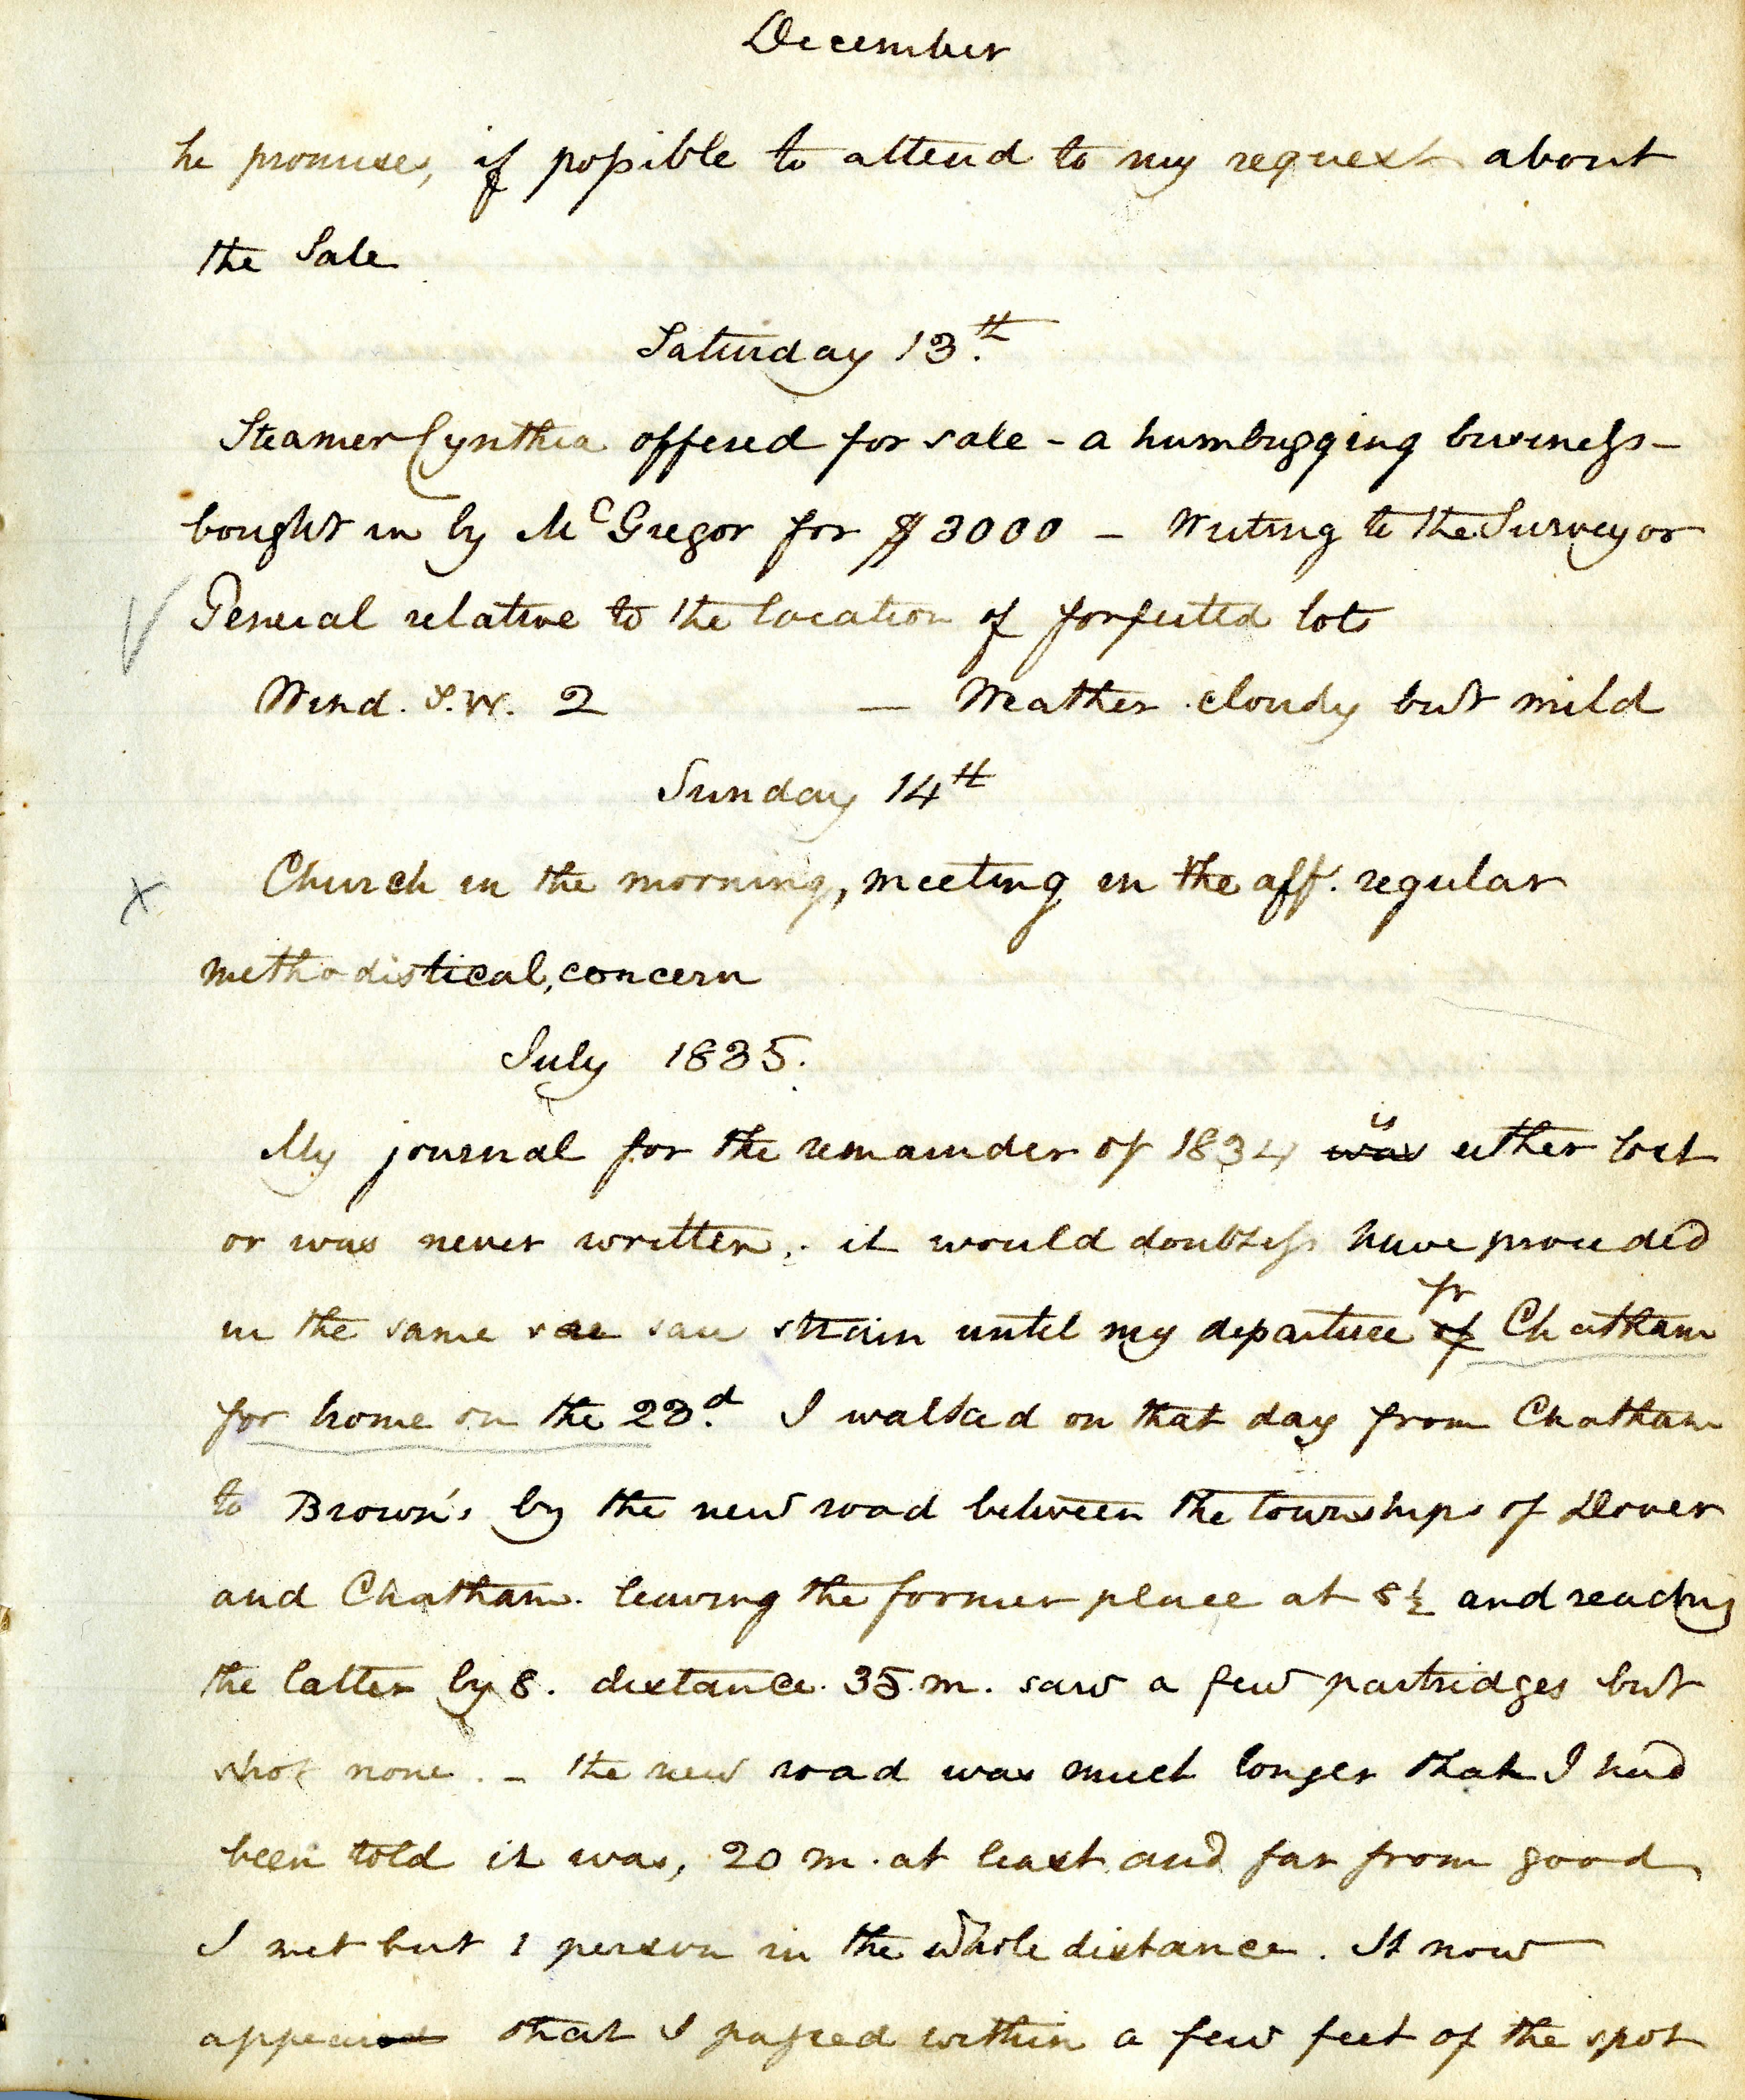 December
he promises, if possible to attend to my request about
the Sale
Saturday 13.th
Steamer Cynthia offered for sale - a humbugging business -
bought in by McGregor for $3000 - Writing to the Surveyor
General relative to the location of forfeited lots
Wind. S.W. 2 — Weather cloudy but mild
Sunday 14th
Church in the morning, meeting in the aft. regular
methodistical, concern
July 1835.
My journal for the remainder of 1834 was is either lost
or was never written. it would doubtless have proceeded
in the same strain until my departure of fr Chatham
for home on the 23.d I walked on that day from Chatham
to Brown's by the new road between the townships of Dover
and Chatham. leaving the former place at 8½ and reaching
the latter by 8. distance. 35 m. saw a few partridges but
shot none. - the new road was much longer than I had
been told it was, 20 m. at least and far from good
I met but 1 person in the whole distance. It now
appeared that I passed within a few feet of the spot